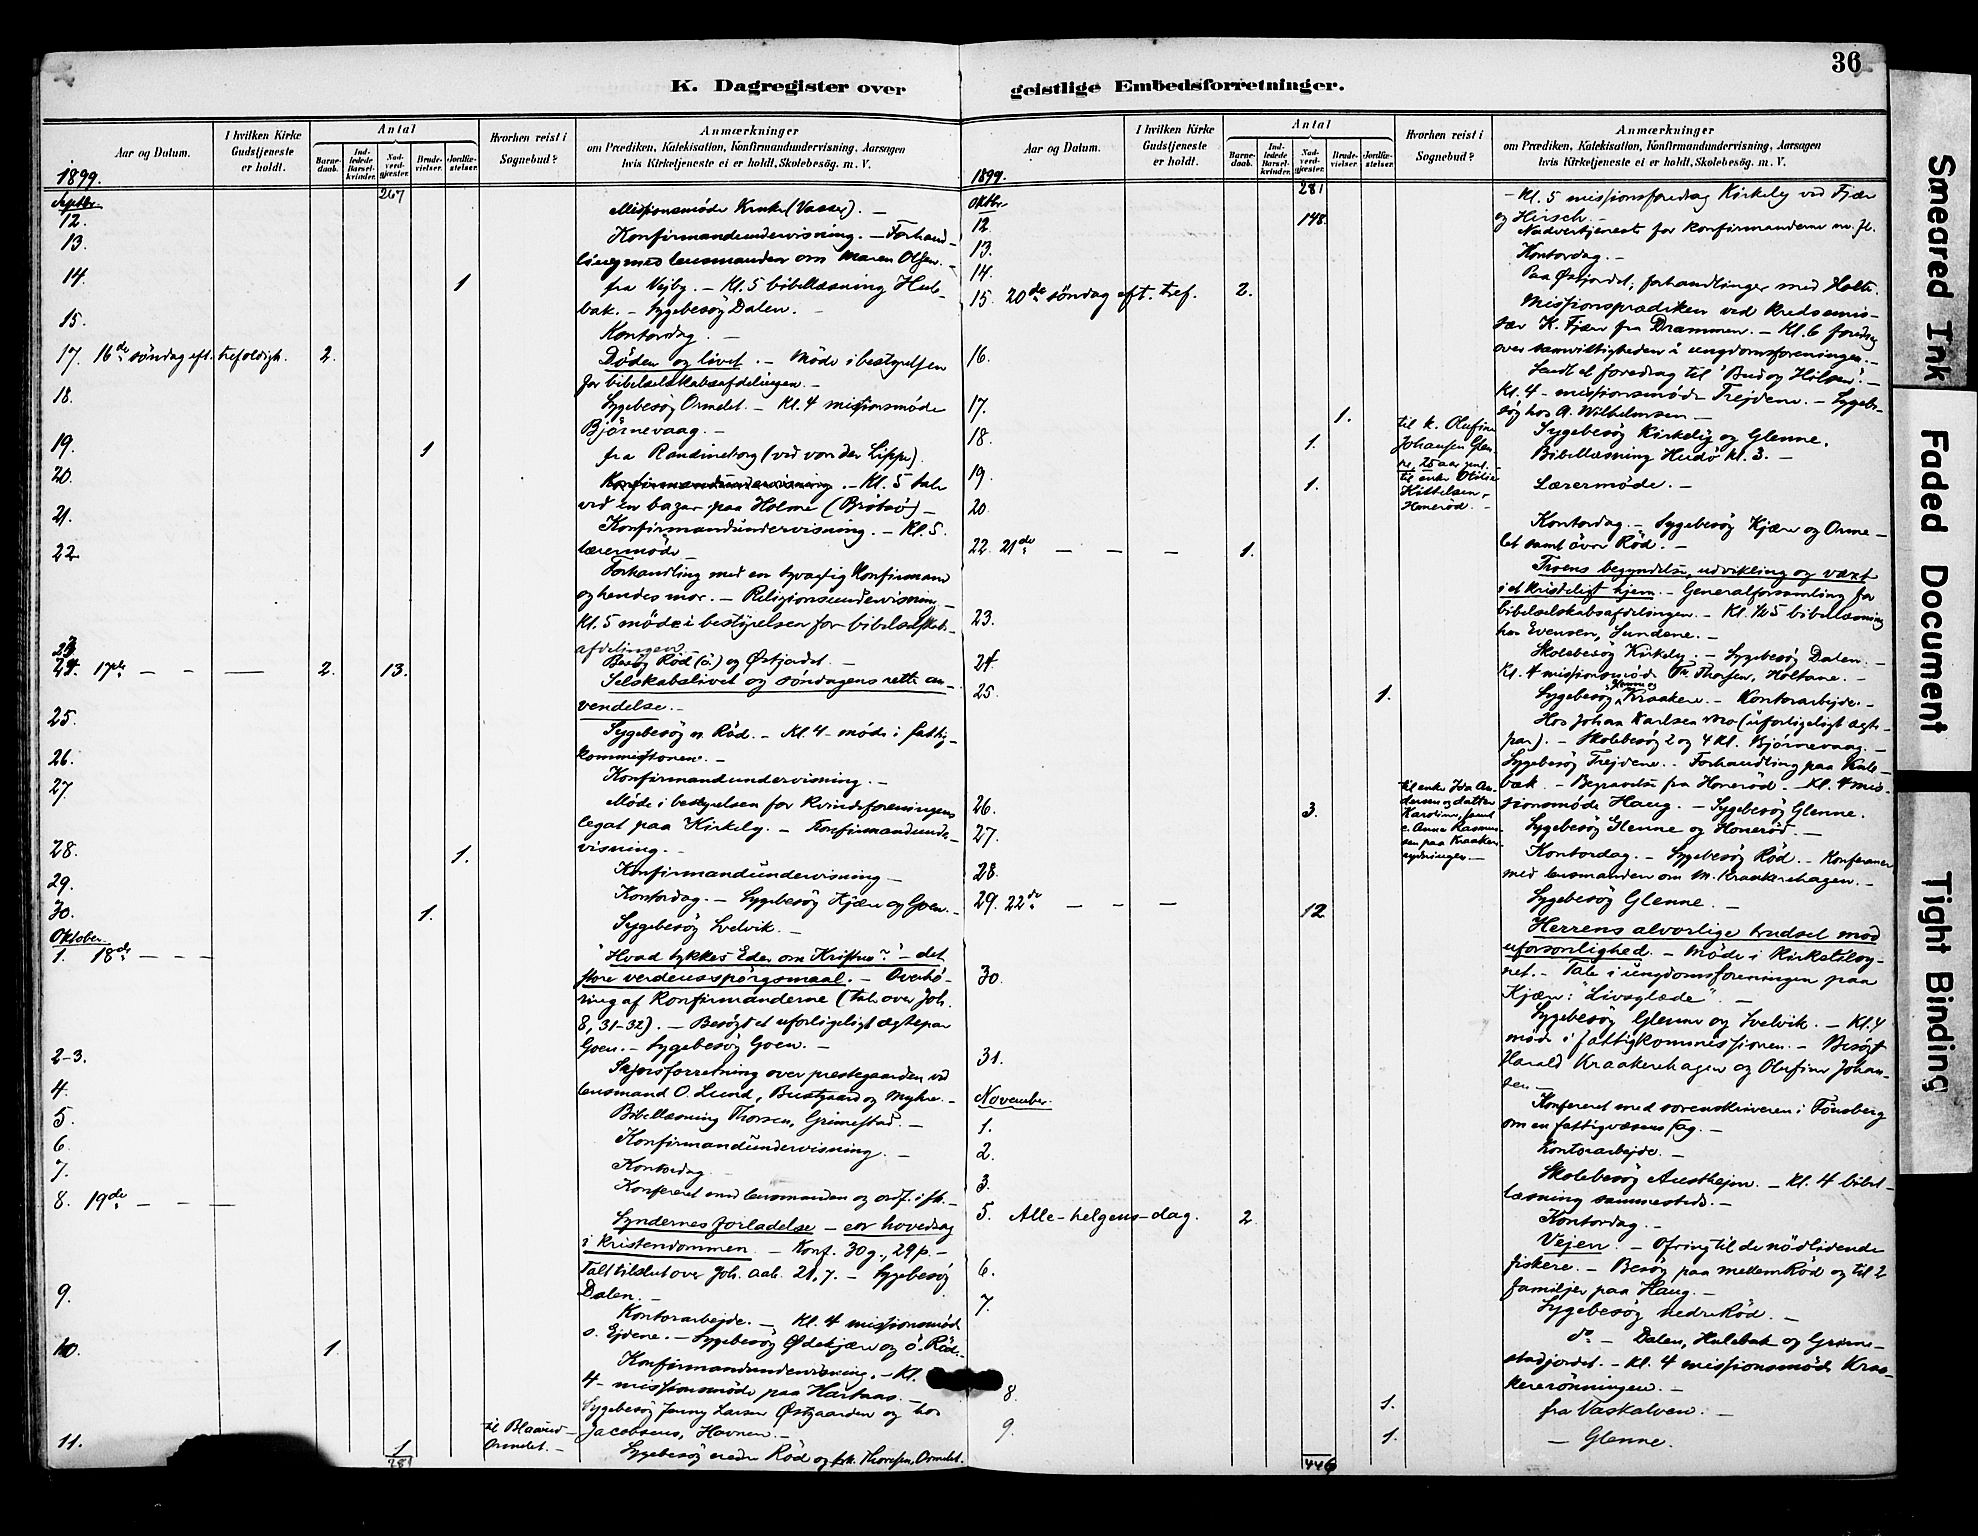 K. Dagregister over
Aar og Datum.
I hvilken Kirke Gudstjeneste er holdt.
Antal
Barnedaab.
Indledede Barselkvinder.
Nadverdgjæster.
Brudevielser.
Jordfæstelser.
Hvorhen reist i Sognebud?
Anmærkninger
om Prædiken, Katekisation, Konfirmandundervisning, Aarsagen
hvis Kirketjeneste ei er holdt, Skolebesög. m. V.
1899.
267
Septbr.
12. Missionsmöde Kruke (Vasser). —
13. Konfirmandundervisning. — Forhand-
ling med lensmanden om Maren Olsen. —
14. 1 fra Vejby. — Kl. 5 bibellæsning Hule-
bak. — Sygebesög Dalen. —
15. Kontordag. —
17. 16de söndag eft. trefoldigh. 2. Döden og livet. — Möde i bestyrelsen
for bibelselskabsafdelingen. —
18. Sygebesög Ormelet. — Kl. 4 missionsmöde
Björnevaag. —
19. 1 fra Randineborg (ved von der Lippe).
20. Konfirmandundervisning. — Kl. 5 tale
ved en bazar paa Holme (Brötsö) —
21. Konfirmandundervisning. — Kl. 5.
lærermöde —
22. Forhandling med en svagelig Konfirmand
og hendes mor. — Religionsundervisning —
Kl. 5 möde i bestyrelsen for bibelselskab-
afdelingen. —
23. Besög Röd (ö.) og Østjordet. —
24. 17de — — — 2. 13. Selskabslivet og söndagens rette an-
vendelse. —
25. Sygebesög n. Röd. — Kl. 4 möde i fattig-
kommissionen. —
26. Konfirmandundervisning. —
27. Möde i bestyrelsen for Kvindeforeningens
legat paa Kirkely. — Konfirmandunder-
visning. —
28. 1. Konfirmandundervisning —
29. Kontordag. — Sygebesög Kjære og Goen. —
30. 1. Sygebesög Svelvik. —
Oktober.
1. 18de — — — "Hvad tykkes Eder om Kristus?" — det
store verdensspörgsmaal. — Overhö-
ring af Konfirmanderne (tale over Joh.
8, 31-32). — Besögt et uforligeligt ægtepar
Goen. — Sygebesög Goen. —
2-3. Skjönsforretning over prestegaarden ved
lensmand O. Lund, Bustgaard og Myhre. —
4. Bibellæsning Thorsen, Grimestad. —
5. Konfirmandundervisning. —
6. Kontordag. —
7. Konfereret med lensmanden og ordf. i fk. —
8. 19de — — — Syndernes forladelse — en hovedsag
i Kristendommen. — Konf. 30 g., 29 p. —
Talt tilslut over Joh. aab. 21, 7. — Sygebesög
Dalen. —
9. Kontorarbejde. — Kl. 4 missionsmöde
ö. Ejdene. — Sygebesög Ødekjære og ö. Röd. —
10. 1. Konfirmandundervisning. — Kl.
4 missionsmöde paa Hartaas. —
Sygebesög Jenny Larsen Østgaarden og hos
Jacobsens, Havnen. —
11. 1 til Blaaud Ormelet. — Sygebesög nedre Röd og frk. Thoresen, Ormelet.
281
36
geistlige Embedsforretninger.
Aar og Datum.
I hvilken Kirke Gudstjeneste er holdt.
Antal
Barnedaab.
Indledede Barselkvinder.
Nadverdgjæster.
Brudevielser.
Jordfæstelser.
Hvorhen reist i Sognebud?
Anmærkninger
om Prædiken, Katekisation, Konfirmandundervisning, Aarsagen
hvis Kirketjeneste ei er holdt, Skolebesög. m. V.
1899.
281
Oktbr.
— Kl. 5 missionsforedrag Kirkely ved Fjær
og Hirsch. —
12. 148. Nadvertjeneste for Konfirmanderne m. fl.
13. Kontordag. —
14. Paa Østjordet; forhandlinger med Holte.
15. 20de söndag eft. tref. 2. Missionsprædiken ved kredsemis-
sær K. Fjær fra Drammen. — Kl. 6 foredrag
over samvittigheden i ungdomsforeningen. —
16. Sendt et foredrag til "Bud og Hilsen". —
Kl. 4 — missionsmöde Trejdene. — Sygebe-
sög hos A. Wilhelmsen —
17. 1. Sygebesög Kirkely og Glenne.
18. 1. til k. Olufine Johansen Glenne, 25 aar gml. — Bibellæsning Hudö kl. 3. —
19. 1. til enke Otilie Kittelsen, Honeröd. — Lærermöde. —
20. Kontordag. — Sygebesög Kjære og Orme-
let samt övre Röd. —
22. 21de — — — 1. Troens begyndelse, udvikling og vækst
i et kristeligt hjem. — Generalforsamling for
bibelselskabsafdelingen. — Kl. 1/2 5 bibellæsning
hos Evensen, Sundene. —
23. Skolebesög Kirkely. — Sygebesög Dalen. —
Kl. 4 missionsmöde Th. Thorsen, Holtane. —
24. Sygebesög Kraakere. — Kontorarbejde. —
25. 1. Hos Johan Karlsen Mo (uforligeligt ægte-
par). — Skolebesög 2 og 4 Kl. Björnevaag. —
Sygebesög Trejdene. — Forhandling paa Hule-
bak. — Begravelse fra Honeröd. — Kl. 4 mis-
sionsmöde Haug. — Sygebesög Glenne.
26. 3. til enke Ida Andersen og datter Karoline, samt e. Anne Rasmussen paa Kraakerrydningen — Sygebesög Glenne og Honeröd. —
27. Kontordag. — Sygebesög Röd. — Konferance
med lensmanden om M. Kraakerehagen. —
28. Sygebesög Glenne. —
29. 22de — — — 12 Herrens alvorlige trudsel mod
uforsonlighed. — Möde i Kirketilsy-
net. — Tale i ungdomsforeningen paa
Kjære: "Livsglæde". —
30. Sygebesög Glenne og Svelvik. — Kl. 4
möde i fattigkommissionen. — Besögt
Harald Kraakerehagen og Olufine Johan-
sen —
31. Konfereret med sorenskriveren i Tönsberg
om en fattigvæsens sag. —
November.
1. Kontorarbejde. —
2. Skolebesög Austhejen. — Kl. 4 bibel-
læsning sammesteds. —
3. Kontordag. —
5. Alle-helgens-dag. 2. Vejen. — Ofring til de nödlidende
fiskere. — Besög paa mellem Röd og til 2
familjer paa Haug. —
6. Sygebesög nedre Röd. —
7. do — Dalen, Hulebak og Grime-
stadjordet. — Kl. 4 missionsmöde Kraa-
kererönningen. —
8. 1. fra Vaskalven. —
9. 1. — Glenne.
446
Smeared Ink
Faded Document
Tight Binding